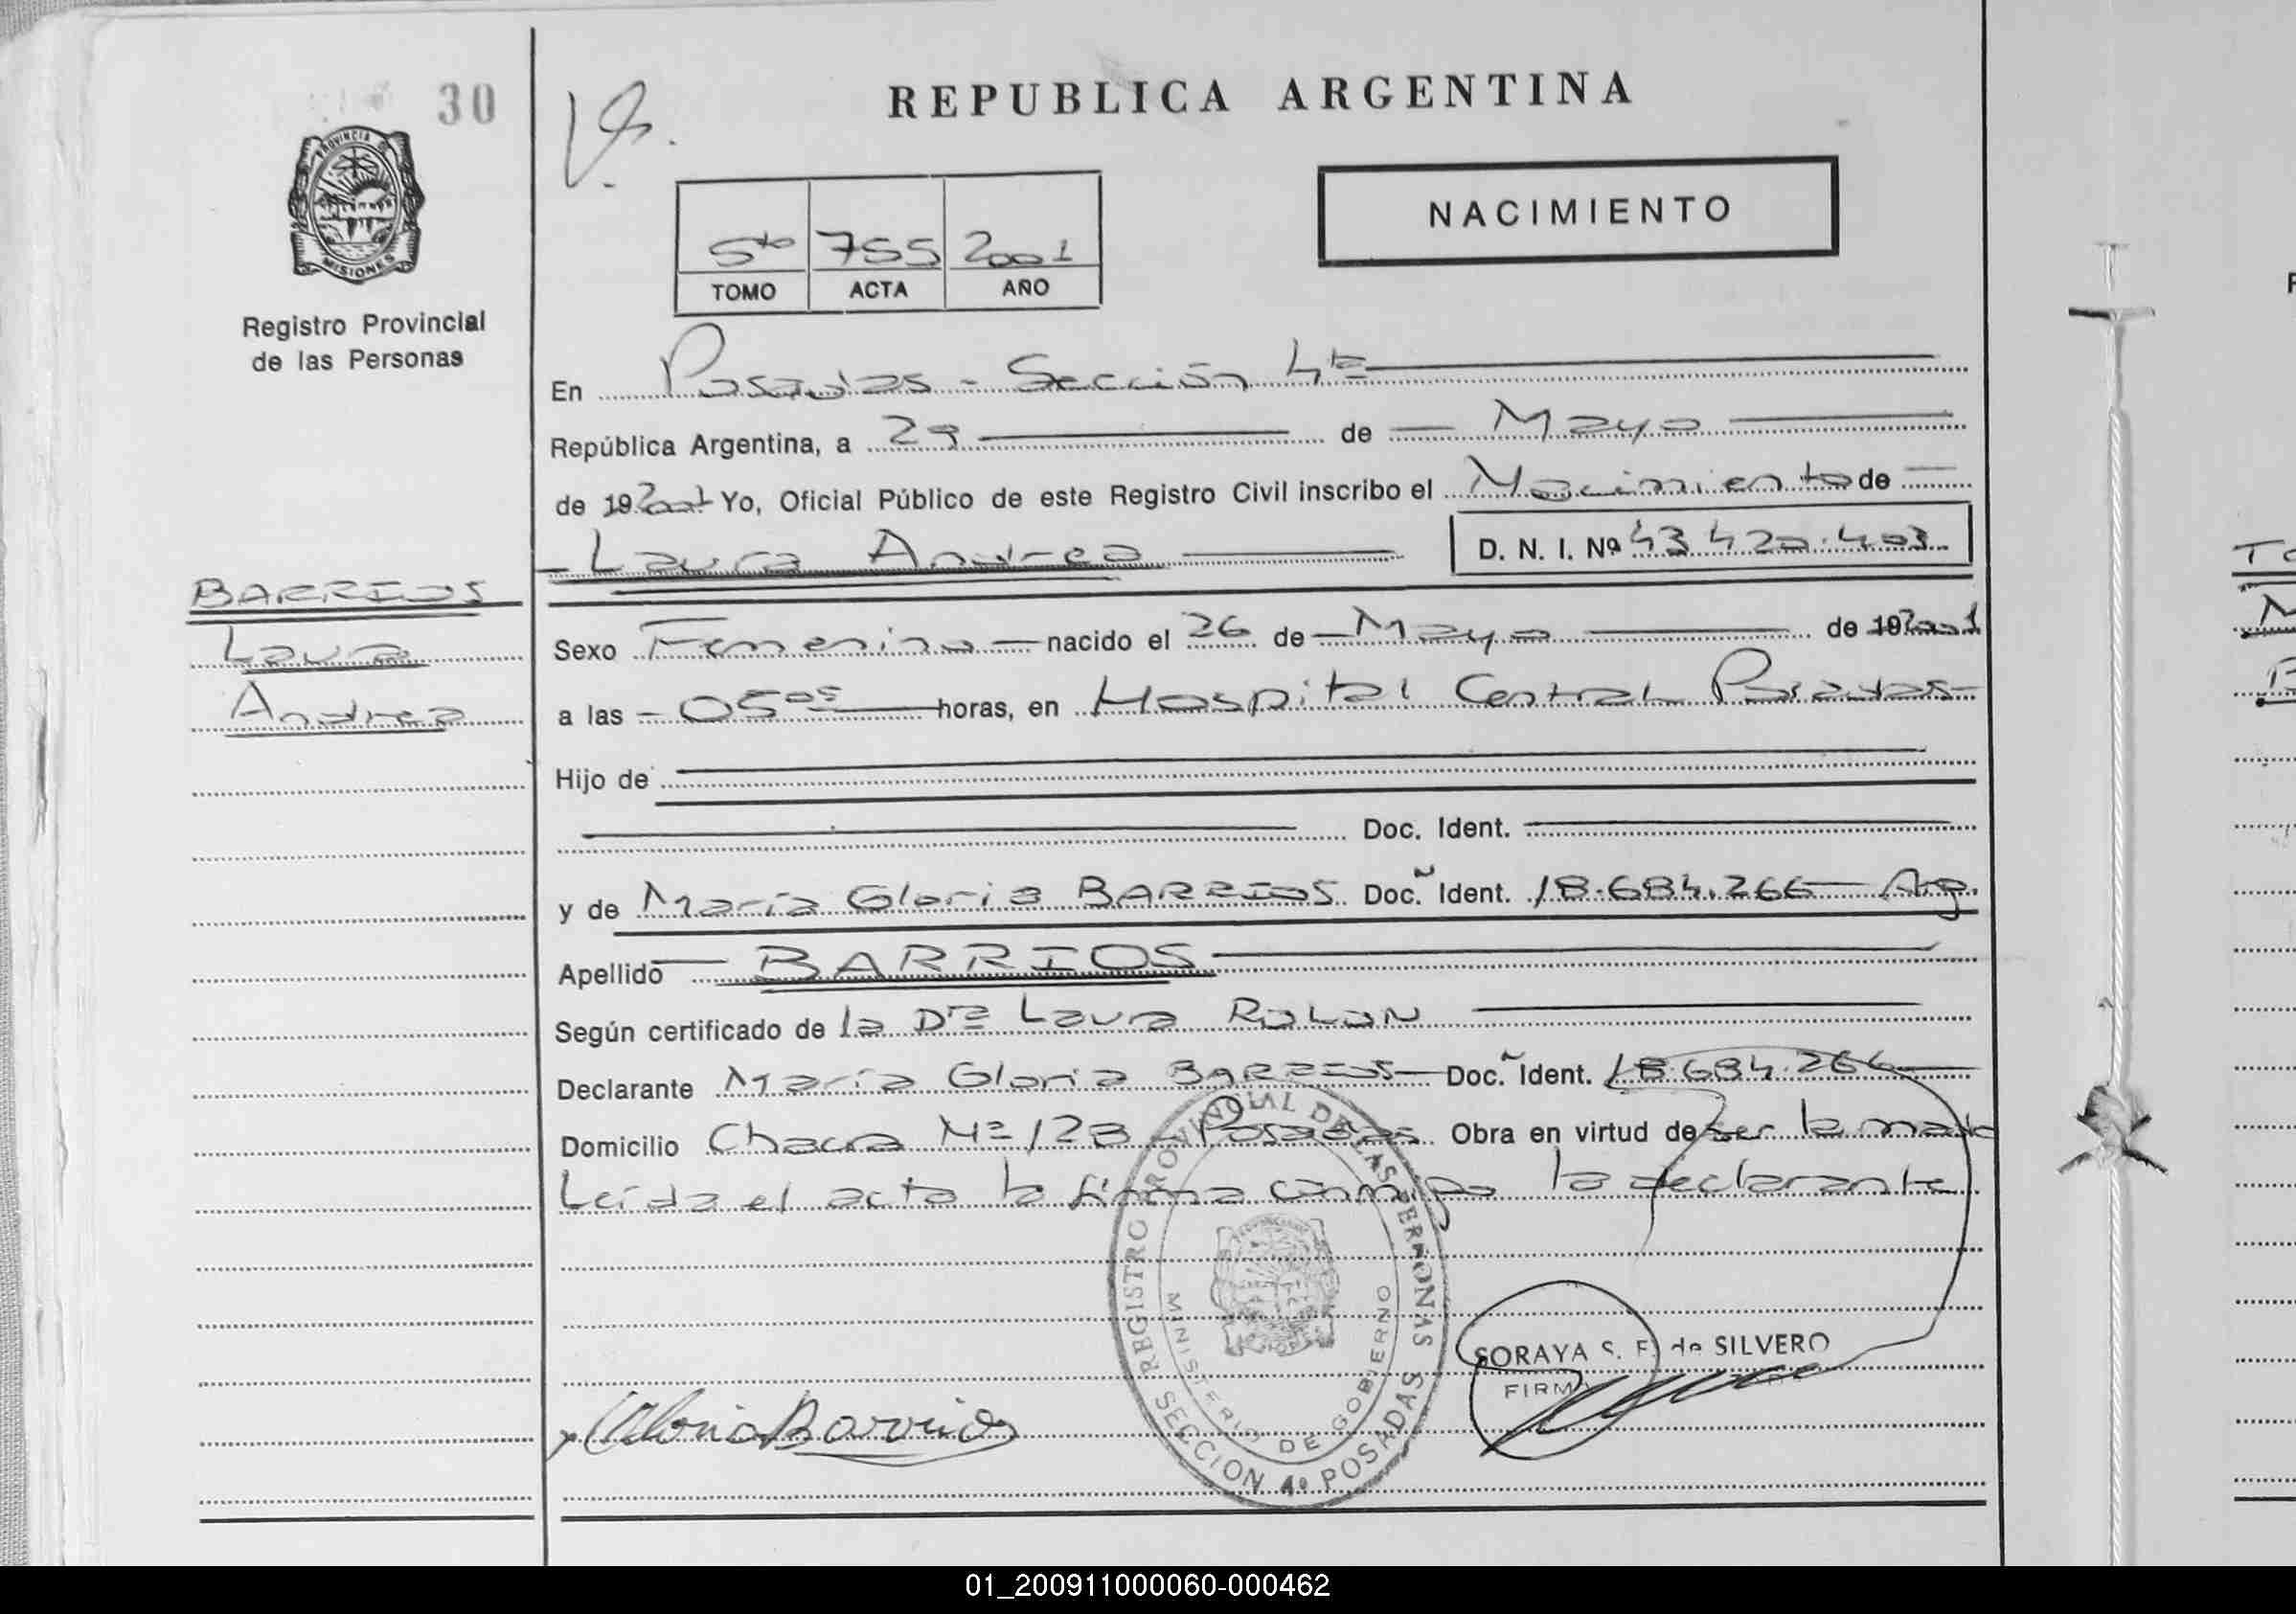 30
REPUBLICA ARGENTINA
PROVINCIA DE
MISIONES
Registro Provincial
de las Personas
NACIMIENTO
5to 755 2001
TOMO ACTA AÑO
En Posadas - Sección 4ta
República Argentina, a 29 de Mayo
de 192001 Yo, Oficial Público de este Registro Civil inscribo el Nacimiento de
Laura Andrea D. N. I. Nº 43 420.403
BARRIOS
Laura
Andrea
Sexo Femenino nacido el 26 de Mayo de 192001
a las 05 05 horas, en Hospital Central Posadas
Hijo de
Doc. Ident.
y de María Gloria BARRIOS Doc. Ident. 18.684.266 Arg.
Apellido BARRIOS
Según certificado de la Dra Laura ROLON
Declarante María Gloria BARRIOS Doc. Ident. 18.684.266
Domicilio Chacra Nº 123 - Posadas Obra en virtud de ser la madre
Leída el acta la firma conmigo la declarante
REGISTRO PROVINCIAL DE LAS PERSONAS
MINISTERIO DE GOBIERNO
SECCION 4º POSADAS
SORAYA S. F. de SILVERO
FIRMA
Gloria Barrios
01_200911000060-000462